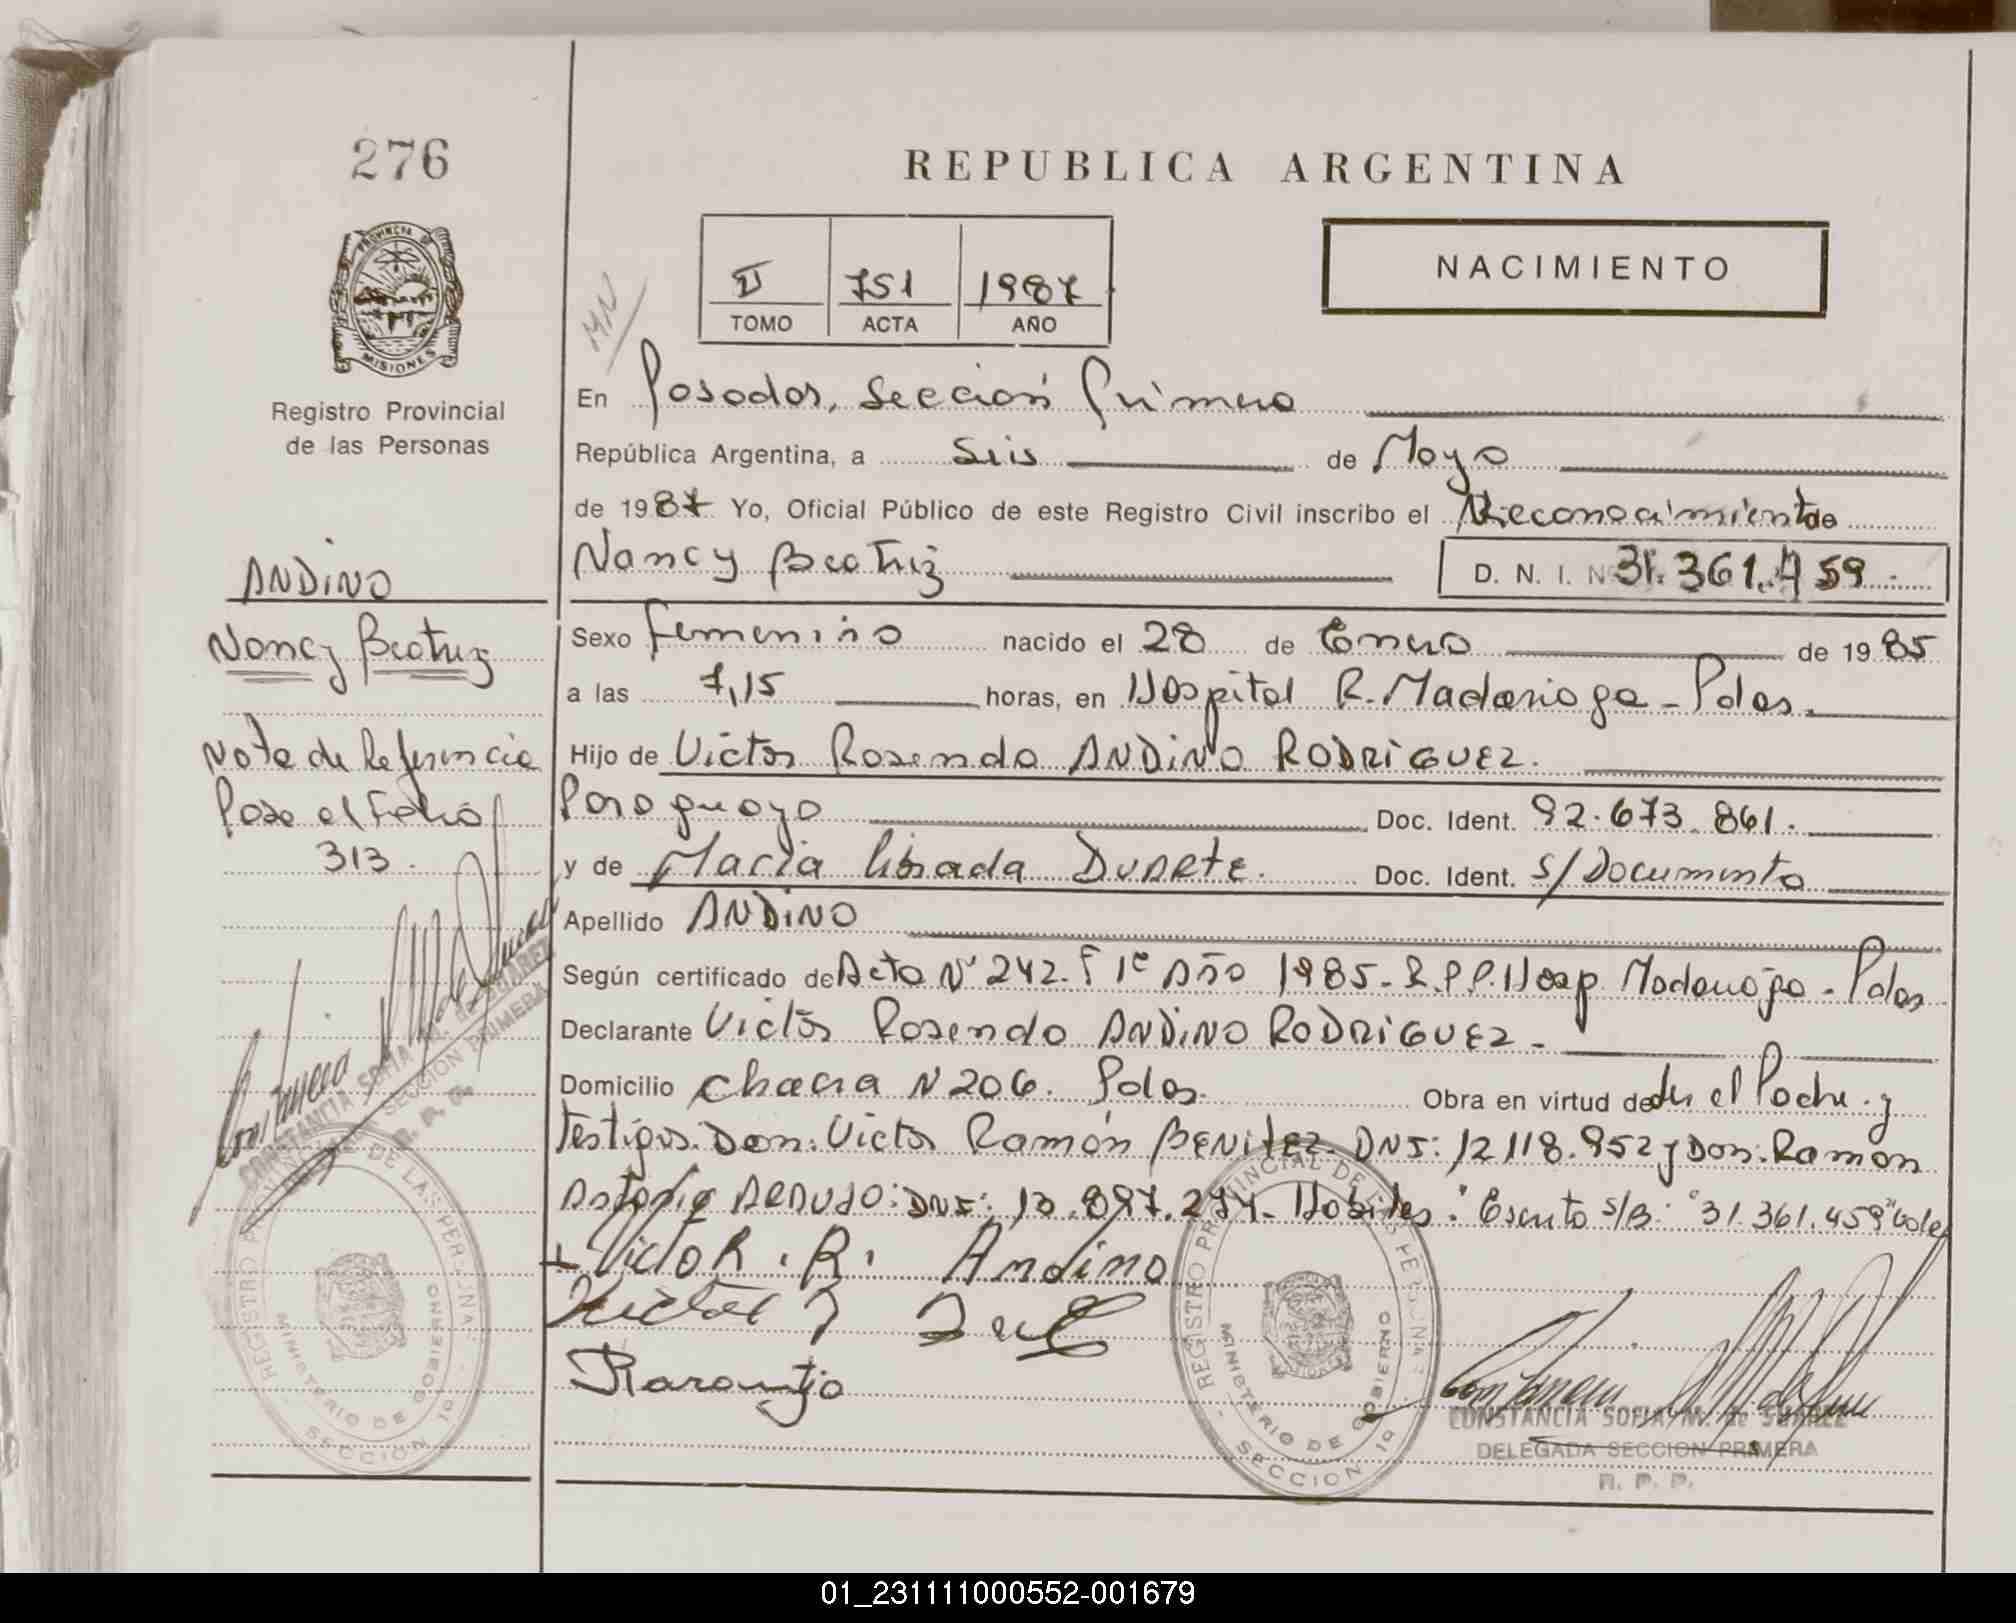 276
REPUBLICA ARGENTINA
PROVINCIA DE
MISIONES
Registro Provincial
de las Personas
II 751 1987
TOMO ACTA AÑO
NACIMIENTO
MN
En Posadas, Sección Primera
República Argentina, a Seis de Mayo
de 1987 Yo, Oficial Público de este Registro Civil inscribo el Reconocimiento de
Nancy Beatriz D. N. I. Nº 31.361.459
ANDINO
Nancy Beatriz
Nota de Referencia
Pase al Folio
313.
Sexo femenino nacido el 28 de Enero de 1985
a las 7,15 horas, en Hospital R. Madariaga - Pdas.
Hijo de Victor Rosendo ANDINO RODRIGUEZ.
Paraguayo Doc. Ident. 92.673.861.
y de Maria librada DUARTE. Doc. Ident. s/Documento
Apellido ANDINO
Según certificado de Acta Nº 242. Tº 1º Año 1985 - R.P.P. Hosp. Madariaga - Pdas
Declarante Victor Rosendo ANDINO RODRIGUEZ -
Domicilio chacra Nº 206. Pdas. Obra en virtud de ser el Padre y
Testigos. Don: Victor Ramón BENITEZ. DNI: 12.118.952 y Don: Ramon
Antonio ARAUJO: DNI: 13.897.274. Habiles. Escrito s/B: "31.361.459" Vale
Victor. R. Andino
Victor
Raraujo
CONSTANCIA SOFIA M. de SUAREZ
DELEGADA SECCION PRIMERA
R. P. P.
CONSTANCIA SOFIA M. de SUAREZ
SECCION PRIMERA
R. P. P.
REGISTRO PROVINCIAL DE LAS PERSONAS
MINISTERIO DE GOBIERNO
SECCION 1º
REGISTRO PROVINCIAL DE LAS PERSONAS
MINISTERIO DE GOBIERNO
SECCION 1º
01_231111000552-001679